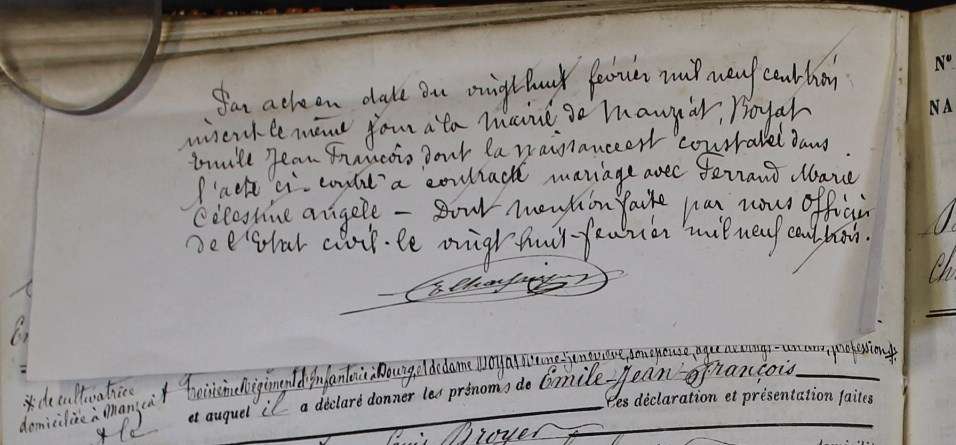 Par acte en date du vingt huit février mil neuf cent trois
inscrit le même jour à la mairie de Manziat, Boyat
Emile Jean François, dont la naissance est constatée dans
l'acte ci-contre a contracté mariage avec Ferrand Marie
Célestine angèle — Dont mention faite par nous Officier
de l'Etat civil. le vingt huit février mil neuf cent trois.
Nº
NA
* de cultivatrice
domiciliée à Manziat
Régiment d'Infanterie à Bourg, et de dame Boyat Geneviève, son épouse, agée de vingt-un ans, profession *
et auquel il a déclaré donner les prénoms de Emile-Jean-François
Ces déclaration et présentation faites
Louis Broyer